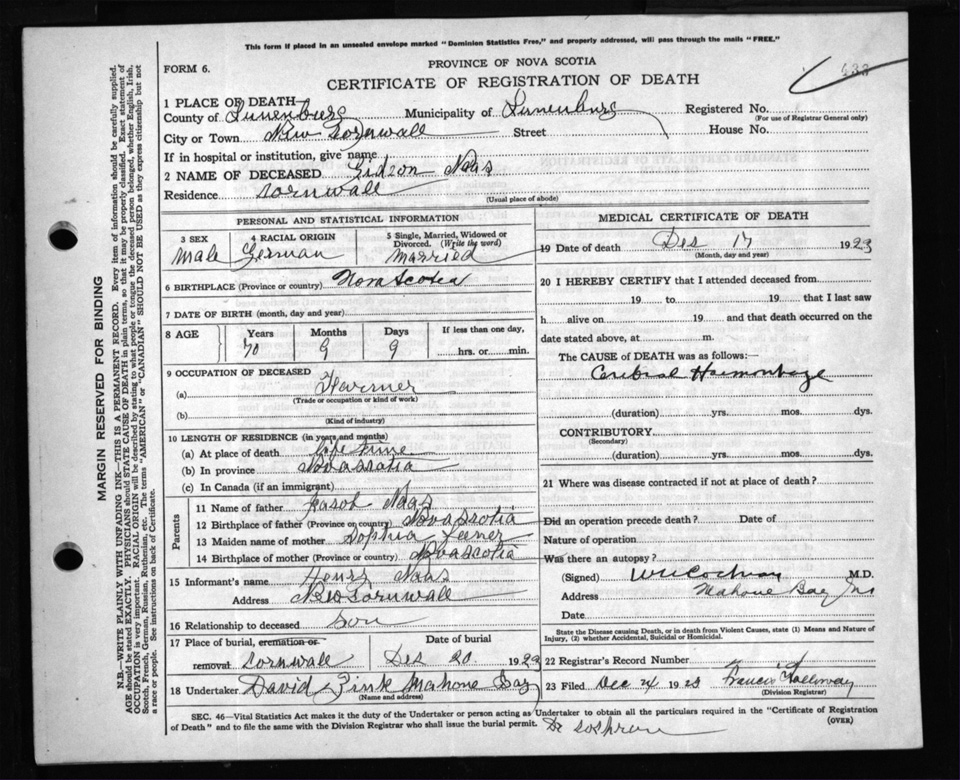 This form if placed in an unsealed envelope marked "Dominion Statistics Free," and properly addressed, will pass through the mails "FREE."
433
PROVINCE OF NOVA SCOTIA
FORM 6.
CERTIFICATE OF REGISTRATION OF DEATH
1 PLACE OF DEATH—
County of Lunenburg Municipality of Lunenburg Registered No.
(For use of Registrar General only)
City or Town New Cornwall Street House No.
If in hospital or institution, give name
2 NAME OF DECEASED Gidson Naas
Residence Cornwall
(Usual place of abode)
PERSONAL AND STATISTICAL INFORMATION
3 SEX 4 RACIAL ORIGIN 5 Single, Married, Widowed or Divorced. (Write the word)
Male German Married
6 BIRTHPLACE (Province or country) Nova Scotia
7 DATE OF BIRTH (month, day and year)
8 AGE Years Months Days If less than one day,
70 9 9 hrs. or min.
9 OCCUPATION OF DECEASED
(a) Farmer
(Trade or occupation or kind of work)
(b)
(Kind of industry)
10 LENGTH OF RESIDENCE (in years and months)
(a) At place of death life time
(b) In province Nova Scotia
(c) In Canada (if an immigrant)
Parents
11 Name of father Jasob Naas
12 Birthplace of father (Province or country) Nova Scotia
13 Maiden name of mother Sophia
14 Birthplace of mother (Province or country) Nova Scotia
15 Informant's name Henry Naas
Address New Cornwall
16 Relationship to deceased Son
17 Place of burial, cremation or Date of burial
removal Cornwall Des 20 1923
18 Undertaker David Zink Mahone Bay
(Name and address)
MEDICAL CERTIFICATE OF DEATH
19 Date of death Des 17 1923
(Month, day and year)
20 I HEREBY CERTIFY that I attended deceased from
19 to 19 that I last saw
h alive on 19 and that death occurred on
date stated above, at m.
The CAUSE of DEATH was as follows:—
Cerebral Haemorrhage
(duration) yrs. mos. dys.
CONTRIBUTORY
(Secondary)
(duration) yrs. mos. dys.
21 Where was disease contracted if not at place of death?
Did an operation precede death? Date of
Nature of operation
Was there an autopsy?
(Signed) W H Cochran M.D.
Address Mahone Bay NS
Date
State the Disease causing Death, or in death from Violent Causes, state (1) Means and Nature of
Injury, (2) whether Accidental, Suicidal or Homicidal.
22 Registrar's Record Number
23 Filed Dec 24 1923 Francis Holloway
(Division Registrar)
SEC. 46—Vital Statistics Act makes it the duty of the Undertaker or person acting as Undertaker to obtain all the particulars required in the "Certificate of Registration
of Death" and to file the same with the Division Registrar who shall issue the burial permit. (OVER)
Dr Soshran
MARGIN RESERVED FOR BINDING
N.B.—WRITE PLAINLY WITH UNFADING INK—THIS IS A PERMANENT RECORD. Every item of information should be carefully supplied.
AGE should be stated EXACTLY. PHYSICIANS should STATE CAUSE OF DEATH in plain terms, so that it may be properly classified. Exact statement of
OCCUPATION is very important. RACIAL ORIGIN will be described by stating to what people or tongue the deceased person belonged, whether English, Irish,
Scotch, French, German, Russian, Ruthenian, etc. The terms "AMERICAN" or "CANADIAN" SHOULD NOT BE USED as they express citizenship but not
a race or people. See instructions on back of Certificate.